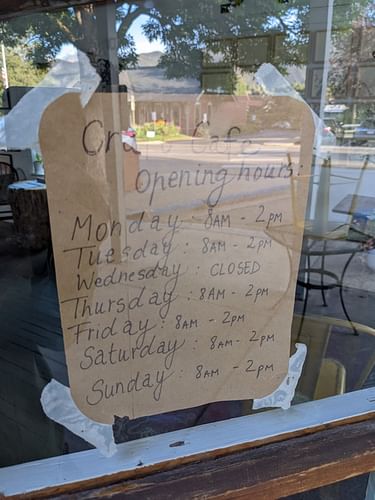 Cafe
Opening hours:
Monday : 8AM - 2PM
Tuesday : 8AM - 2PM
Wednesday : CLOSED
Thursday : 8AM - 2PM
Friday : 8AM - 2PM
Saturday : 8AM - 2PM
Sunday : 8AM - 2PM